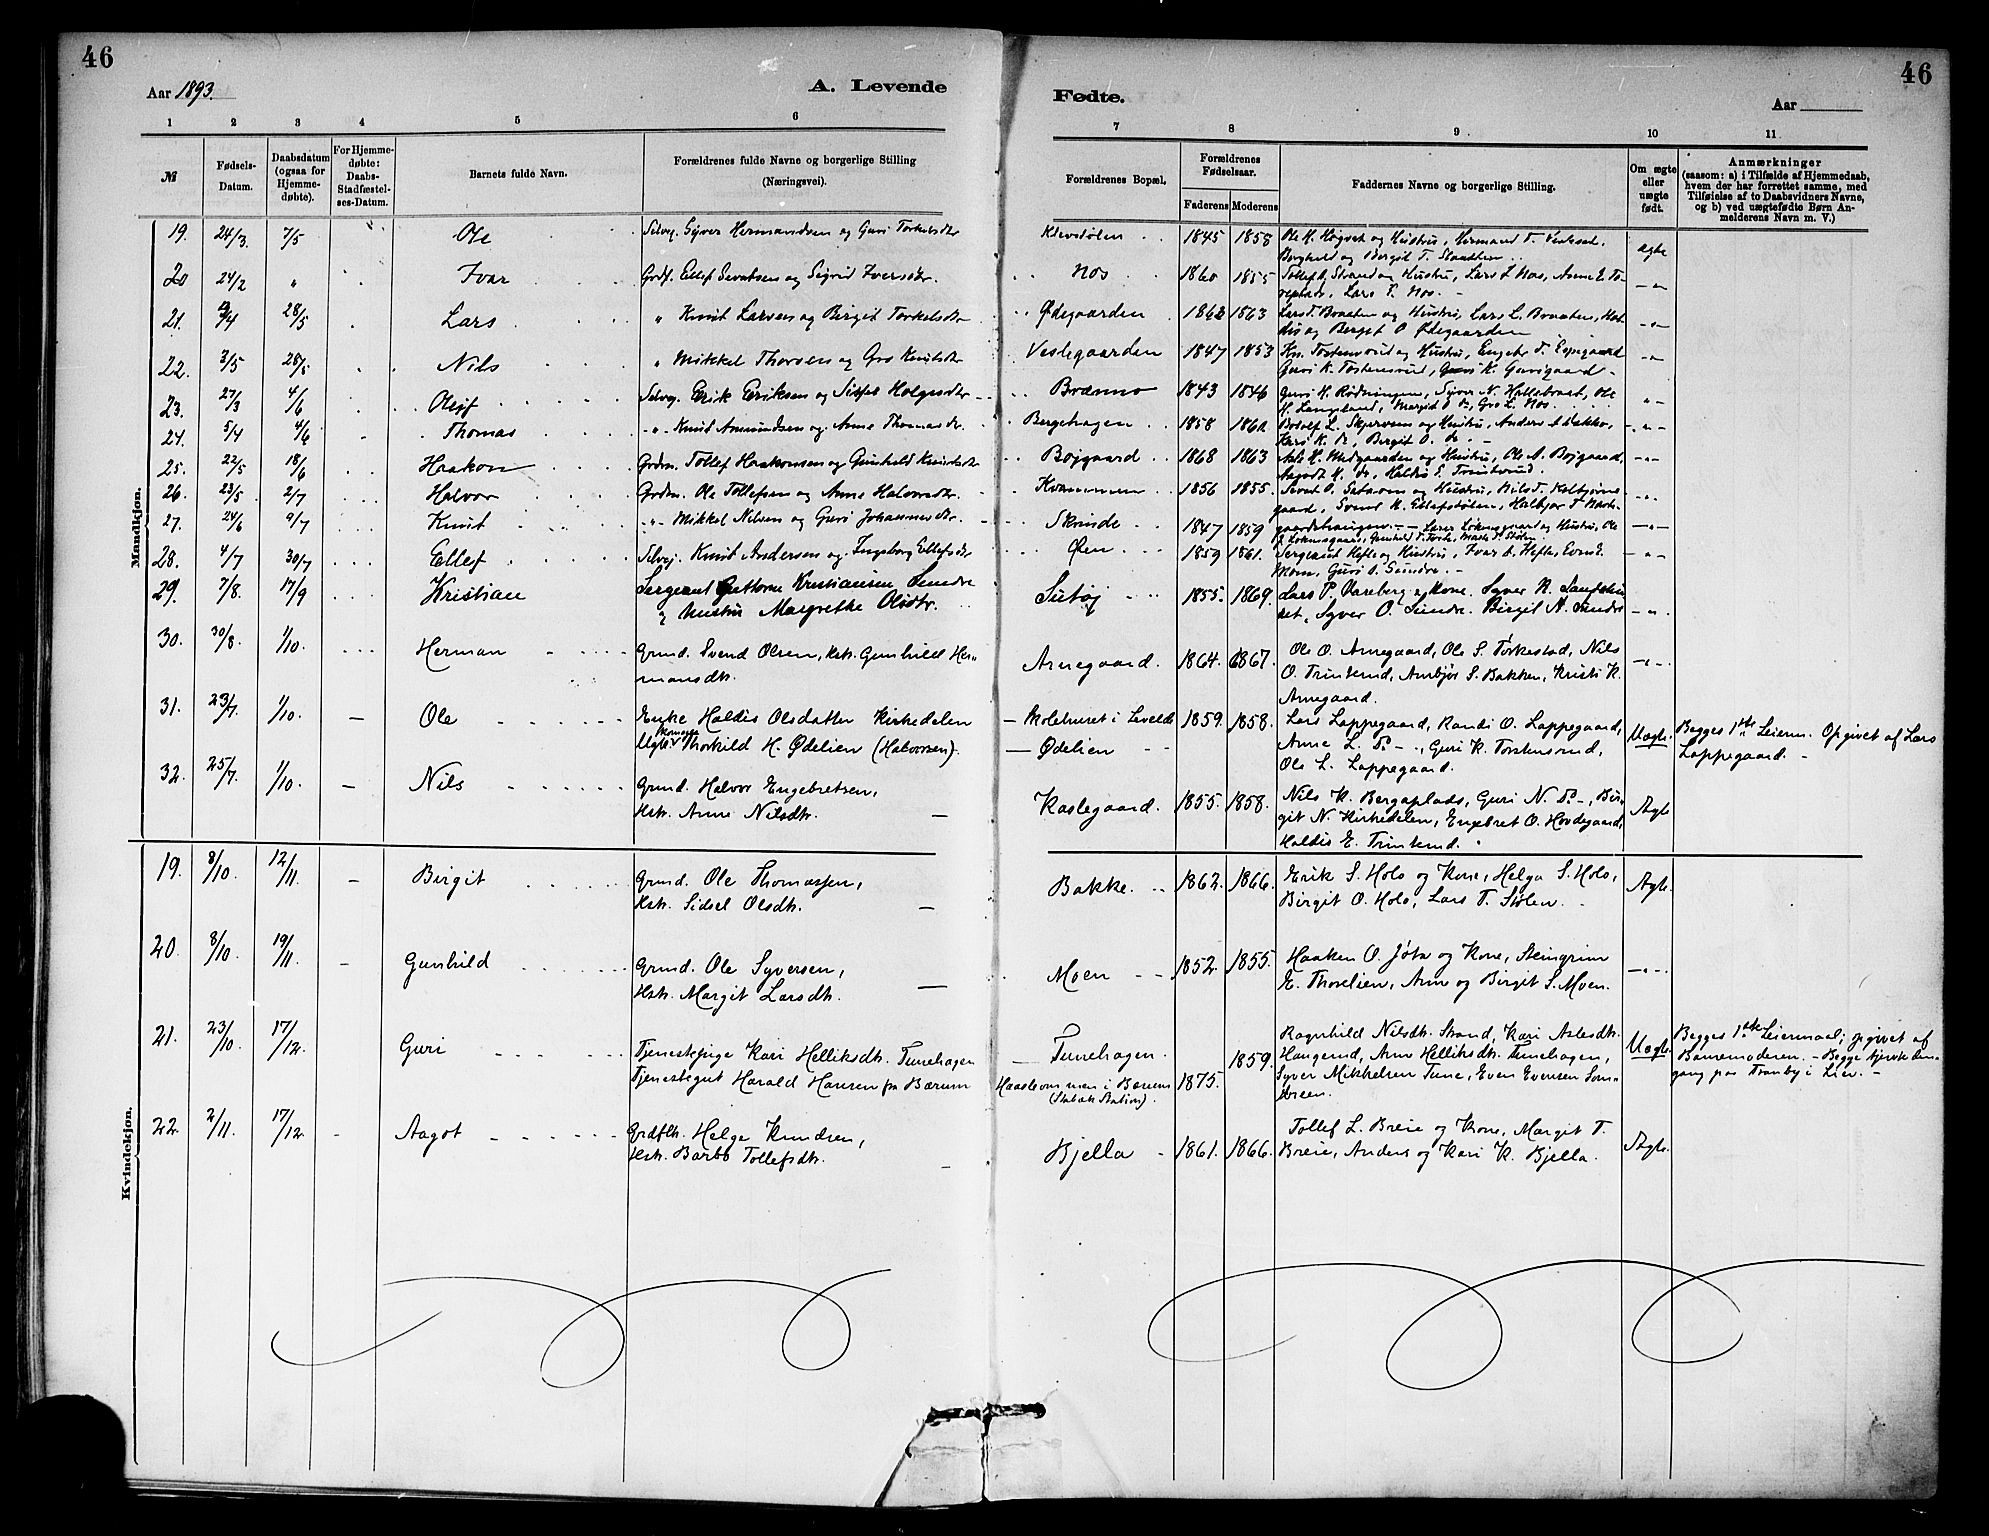 46
46
Aar 1893.
A. Levende
Fødte.
Aar
1 2 3 4 5 6 7 8 9 10 11
№
Fødsels-
Datum.
Daabsdatum
(ogsaa for
Hjemme-
døbte).
For Hjemme-
døbte:
Daabs-
Stadfæstel-
ses-Datum.
Barnets fulde Navn.
Forældrenes fulde Navne og borgerlige Stilling
(Næringsvei).
Forældrenes Bopæl.
Forældrenes
Fødselsaar.
Faderens Moderens
Faddernes Navne og borgerlige Stilling.
Om ægte
eller
uægte
født.
Anmærkninger
(saasom: a) i Tilfælde af Hjemmedaab,
hvem der har forrettet samme, med
Tilføielse af to Daabsvidners Navne,
og b) ved uægtefødte Børn An-
melderens Navn m. V.)
Mandkjøn.
19. 24/3. 7/5 Ole Selvej. Syver Hermandsen og Guri Torkelsdtr Klevstølen 1845 1858 Ole H. Høgset og Hustru, Hermand T.
Borghild og Bergit T. ægte
20 24/2 " Ivar Grdf. Ellef Sevatsen og Sigrid Iversdtr. Nos 1860 1855 Tollef O. Strand og Hustru, Lars L Nos, Anne E. To-
replads, Lars T. Nos. - — " —
21. /4 28/5 Lars " Knut Larsen og Birgit Torkelsdtr Ødegaarden 1862 1863 Lars T. Braaten og Hustru, Lars L. Braaten, Hal-
dis og Berget O Ødegaarden — " —
22. 3/5 28/5 Nils " Mikkel Thorsen og Gro Knutsdtr Vestegaarden 1847 1853 Kn. Tostensrud og Hustru, Engebr T. Espegaard
Guri K. Tostensrud, Guri K. Gurigaard - — " —
23. 27/3 4/6 Oleif Selvej. Erik Eriksen og Helgesdtr Bræmmo 1843 1846 Guri H. Rødningen, Syver N. Hallebrat, Ole
H. Langeland, Margit O do, Gro L. Nos. " —
24. 5/4 4/6 Thomas — " — Knut Amundsen og Anne Thomasdr. Bergehagen 1858 1861. Bodolf L. Skjervem og Hustru, Anders Bakko-
Lars K. do, Bergit O. do. - — " —
25. 22/5 18/6 Haakon Grdm. Tollef Haakonsen og Gunhild Knutsdtr Bøjgaard 1868 1863 Asle H. Medgaarden og Hustru, Ole A. Bøjgaard,
Aagodt H. do, Haldis E. Trintrud. — " —
26. 23/5. 2/7 Halvor Grdm. Ole Tollefsen og Anne Halvorsdtr. Kvammen 1856 1855. Sevat O. Sataøen og Hustru, Nils T. Kolbjørns-
gaard, Svend K. Ellefsstølen, Halbjør T Bak- — " —
27. 24/6 9/7 Knut — " — Mikkel Nilsen og Guri Johannesdtr. Skrinde 1847 1859 gaardshaugen. — Lars Løkensgaard og Hustru, Ole
Løkensgaard, Gunhild do Tofte, Stølen. — " —
28. 4/7 30/7 Ellef Selvej. Knut Andersen og Ingeborg Ellefsdtr Øen 1859 1861. Sergeant Hefte og Hustru, Ivar A. Hefte, Even E.
Moen, Guri O. Sundre. - — " —
29. 7/8. 17/9 Kristian Sergeant Guttorm Kristiansen Sundre
og Hustru Margrethe Olsdtr. Sutøj 1855. 1869. Lars P. Vareberg og Kone. Syver N. Sangstu-
set, Syver O. Sundre. Birgit N. Sundre — " —
30. 30/8. 1/10. Herman Grmd. Svend Olsen, Hstr. Gunhild Her-
mansdtr. Arnegaard. 1864. 1867. Ole O. Arnegaard, Ole S. Torkestad, Nils
O. Trintrud, Arnbjør S. Bakken, Kristi K.
Arnegaard. — " —
31. 23/7. 1/10. — Ole Enke Haldis Olsdatter Kirkedelen
Ugte Thorkild H. Ødelien (Halvorsen). — Skolehuset i Leveld
— Ødelien 1859. 1858. Lars Lappegaard, Randi O. Lappegaard,
Anne L. Do —, Guri K. Torstensrud,
Ole L. Lappegaard. Uægte. Begges 1ste Leierm. Opgivet af Lars
Lappegaard. -
32. 25/7. 1/10. — Nils Grmd. Halvor Engebretsen,
Hstr. Anne Nilsdtr. — Kaslegaard. 1855. 1858. Nils K. Bergaplads, Guri N. Do —, Bir-
git N. Kirkedelen, Engebret O. Hovdegaard,
Haldis E. Trintrud. Ægte
Kvindekjøn.
19. 8/10. 12/11. — Birgit Grmd. Ole Thomassen,
Hstr. Sidsel Olsdtr. — Bakke. 1862. 1866. Erik S. Holo og Kone, Helga S. Holo,
Birgit O. Holo, Lars T. Stølen. Ægte.
20. 8/10. 19/11. — Gunhild Grmd. Ole Syversen,
Hstr. Margit Larsdtr. — Moen — 1852. 1855. Haaken O. Jøta og Kone, Steingrim
E. Thorelien, Arne og Birgit S. Moen. — " —
21. 23/10. 17/12. Guri Tjenestepige Kari Helliksdtr. Tunehagen
Tjenestegut Harald Hansen fra Bærum — Tunehagen.
i Bærum
(Stabæk Station). 1875. 1859. Ragnhild Nilsdtr. Strand, Kari Aslesdtr.
Haugerud, Arne Helliksdtr. Tunehagen,
Syver Mikkelsen Tune, Even Evensen Som-
dreen. Uægte. Begges 1ste Leiermaal; opgivet af
Barnemoderen. — Begge tjente den-
gang paa Tranby i Lier. —
22. 2/11. 17/12. - Aagot Grdfth. Helge Knudsen,
Hstr. Barbo Tollefsdtr. - Bjella - 1861. 1866. Tollef L. Breie og Kone, Margit T.
Breie, Anders og Kari K. Bjella. Ægte.